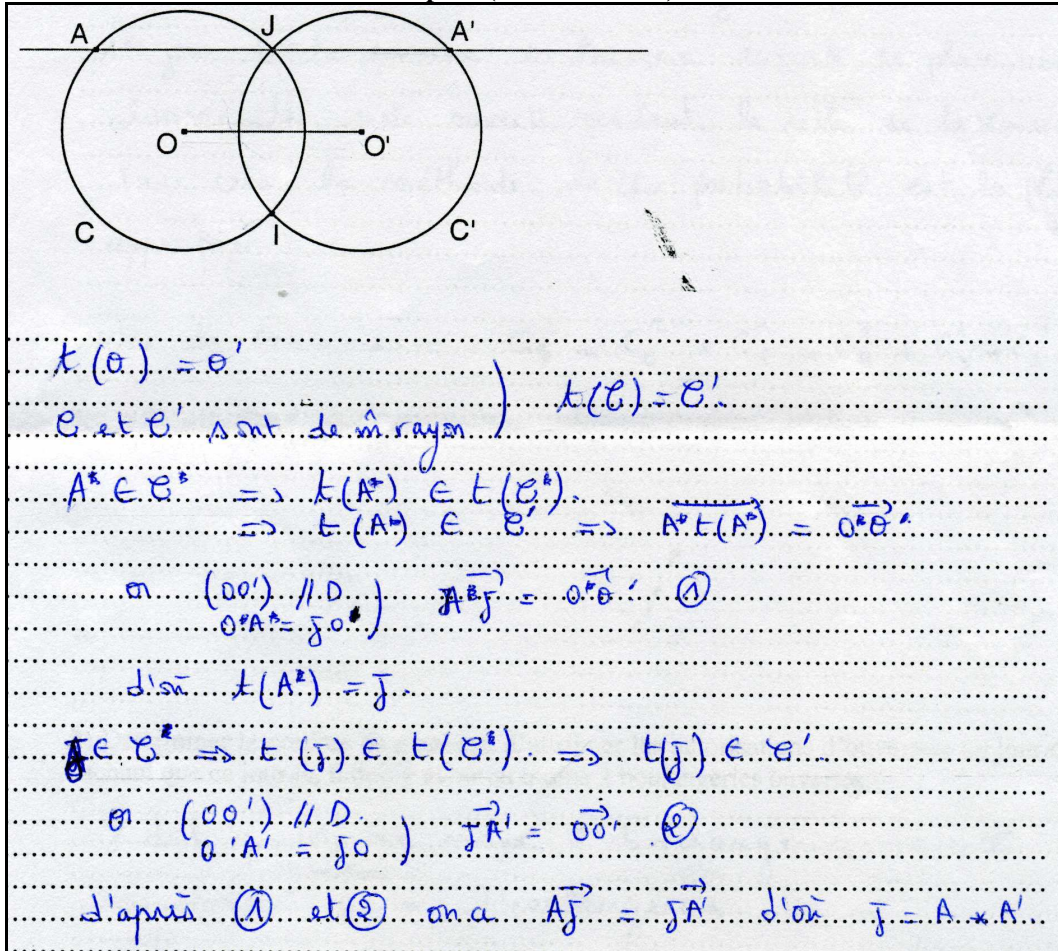 A J A'
O O'
C I C'
t(O) = O'
C et C' sont de m̂ rayon ) t(C) = C'.
A* ∈ C* => t(A*) ∈ t(C*).
=> t(A*) ∈ C' => A*t(A*) = O*O'.
or (OO') // D
O*A* = JO' ) A*J = O*O'. ①
d'où t(A*) = J.
J ∈ C* => t(J) ∈ t(C*) => t(J) ∈ C'.
or (OO') // D.
O'A' = JO ) JA' = OO' ②
d'après ① et ② on a AJ = JA' d'où J = A * A'.